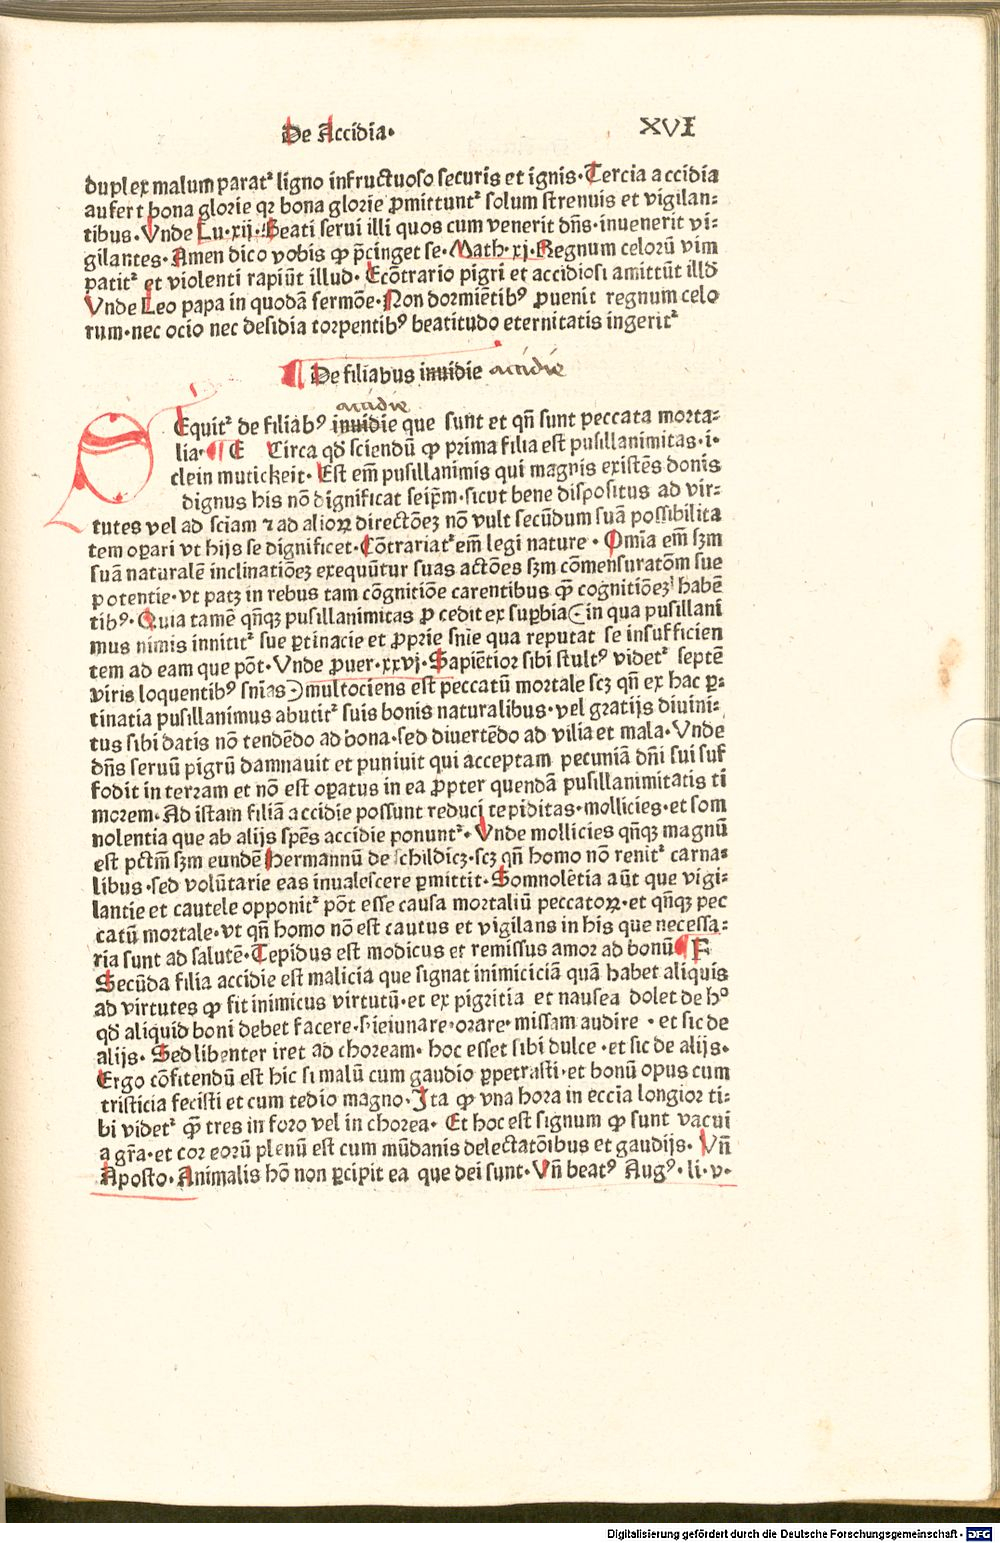 De Accidia·
XVI
duplex malum paratꝛ ligno infructuoso securis et ignis·Tercia accidia
aufert bona glorie qꝛ bona glorie ꝓmittuntꝛ solum strenuis et vigilan⸗
tibus·Vnde Lu·xij·Beati serui illi quos cum venerit dñs·inuenerit vi⸗
gilantes·Amen dico vobis ꝙ p̄cinget se·Math·xj·Regnum celorū vim
patitꝛ et violenti rapiūt illud·Ecōtrario pigri et accidiosi amittūt illđ
Vnde Leo papa in quodā sermōe·Non dormiētibꝰ ꝓuenit regnum celo
rum·nec ocio nec desidia torpentibꝰ beatitudo eternitatis ingeritꝛ
¶ De filiabus inuidie accidie
accidie
SEquitꝛ de filiabꝰ inuidie que sunt et qñ sunt peccata morta⸗
lia·¶ E Circa qđ sciendū ꝙ prima filia est pusillanimitas·i·
clein mutickeit·Est em̄ pusillanimis qui magnis existēs donis
dignus his nō dignificat seip̄m·sicut bene dispositus ad vir⸗
tutes vel ad sciam ⁊ ad alioꝝ directōeꝫ nō vult secūdum suā possibilita
tem oꝑari vt hijs se dignificet·Cōtrariatꝛ em̄ legi nature·Omīa em̄ ſꝫm
suā naturalē inclinatiōeꝫ exequūtur suas actōes ſꝫm cōmensuratōm sue
potentie·vt patꝫ in rebus tam cōgnitiōe carentibus ꝙ̄ cognitiōeꝫ habē
tibꝰ·Quia tamē qñqꝫ pusillanimitas ꝓcedit ex suꝑbia(in qua pusillani
mus nimis innititꝛ sue ꝑtinacie et ꝓprie snīe qua reputat se insufficien
tem ad eam que pōt·Vnde ꝓuer·xxvj·Sapiētior sibi stultꝰ videtꝛ septē
viris loquentibꝰ snīas)multociens est peccatū mortale scꝫ qñ ex hac ꝑ⸗
tinatia pusillanimus abutitꝛ suis bonis naturalibus·vel gratijs diuini⸗
tus sibi datis nō tendēdo ad bona·sed diuertēdo ad vilia et mala·Vnde
dñs seruū pigrū damnauit et puniuit qui acceptam pecuniā dñi sui suf
fodit in terram et nō est oꝑatus in ea ꝓpter quendā pusillanimitatis ti
morem·Ad istam filiā accidie possunt reduci tepiditas·mollicies·et som
nolentia que ab alijs spēs accidie ponuntꝛ·Vnde mollicies qñqꝫ magnū
est pctm̄ ſꝫm eundē Hermannū de schildicꝫ·scꝫ qñ homo nō renitꝛ carna⸗
libus·sed volūtarie eas inualescere ꝑmittit·Somnolētia aūt que vigi⸗
lantie et cautele opponitꝛ pōt esse causa mortaliū peccatoꝝ·et qñqꝫ pec
catū mortale·vt qñ homo nō est cautus et vigilans in his que necessa⸗
ria sunt ad salutē·Tepidus est modicus et remissus amor ad bonū ¶ F
Secūda filia accidie est malicia que signat inimiciciā quā habet aliquis
ad virtutes ꝙ fit inimicus virtutū·et ex pigritia et nausea dolet de hº
qđ aliquid boni debet facere·s·ieiunare·orare·missam audire·et sic de
alijs·Sed libenter iret ad choream·hoc esset sibi dulce·et sic de alijs·
Ergo cōfitendū est hic si malū cum gaudio ꝑpetrasti·et bonū opus cum
tristicia fecisti et cum tedio magno·Ita ꝙ vna hora in eccīa longior ti⸗
bi videtꝛ ꝙ̄ tres in foro vel in chorea·Et hoc est signum ꝙ sunt vacui
a gr̄a·et cor eorū plenū est cum mūdanis delectatōibus et gaudijs·Vñ
Aposto·Animalis hō non ꝑcipit ea que dei sunt·Vñ beatꝰ Augꝰ·li·v·
Digitalisierung gefördert durch die Deutsche Forschungsgemeinschaft · DFG